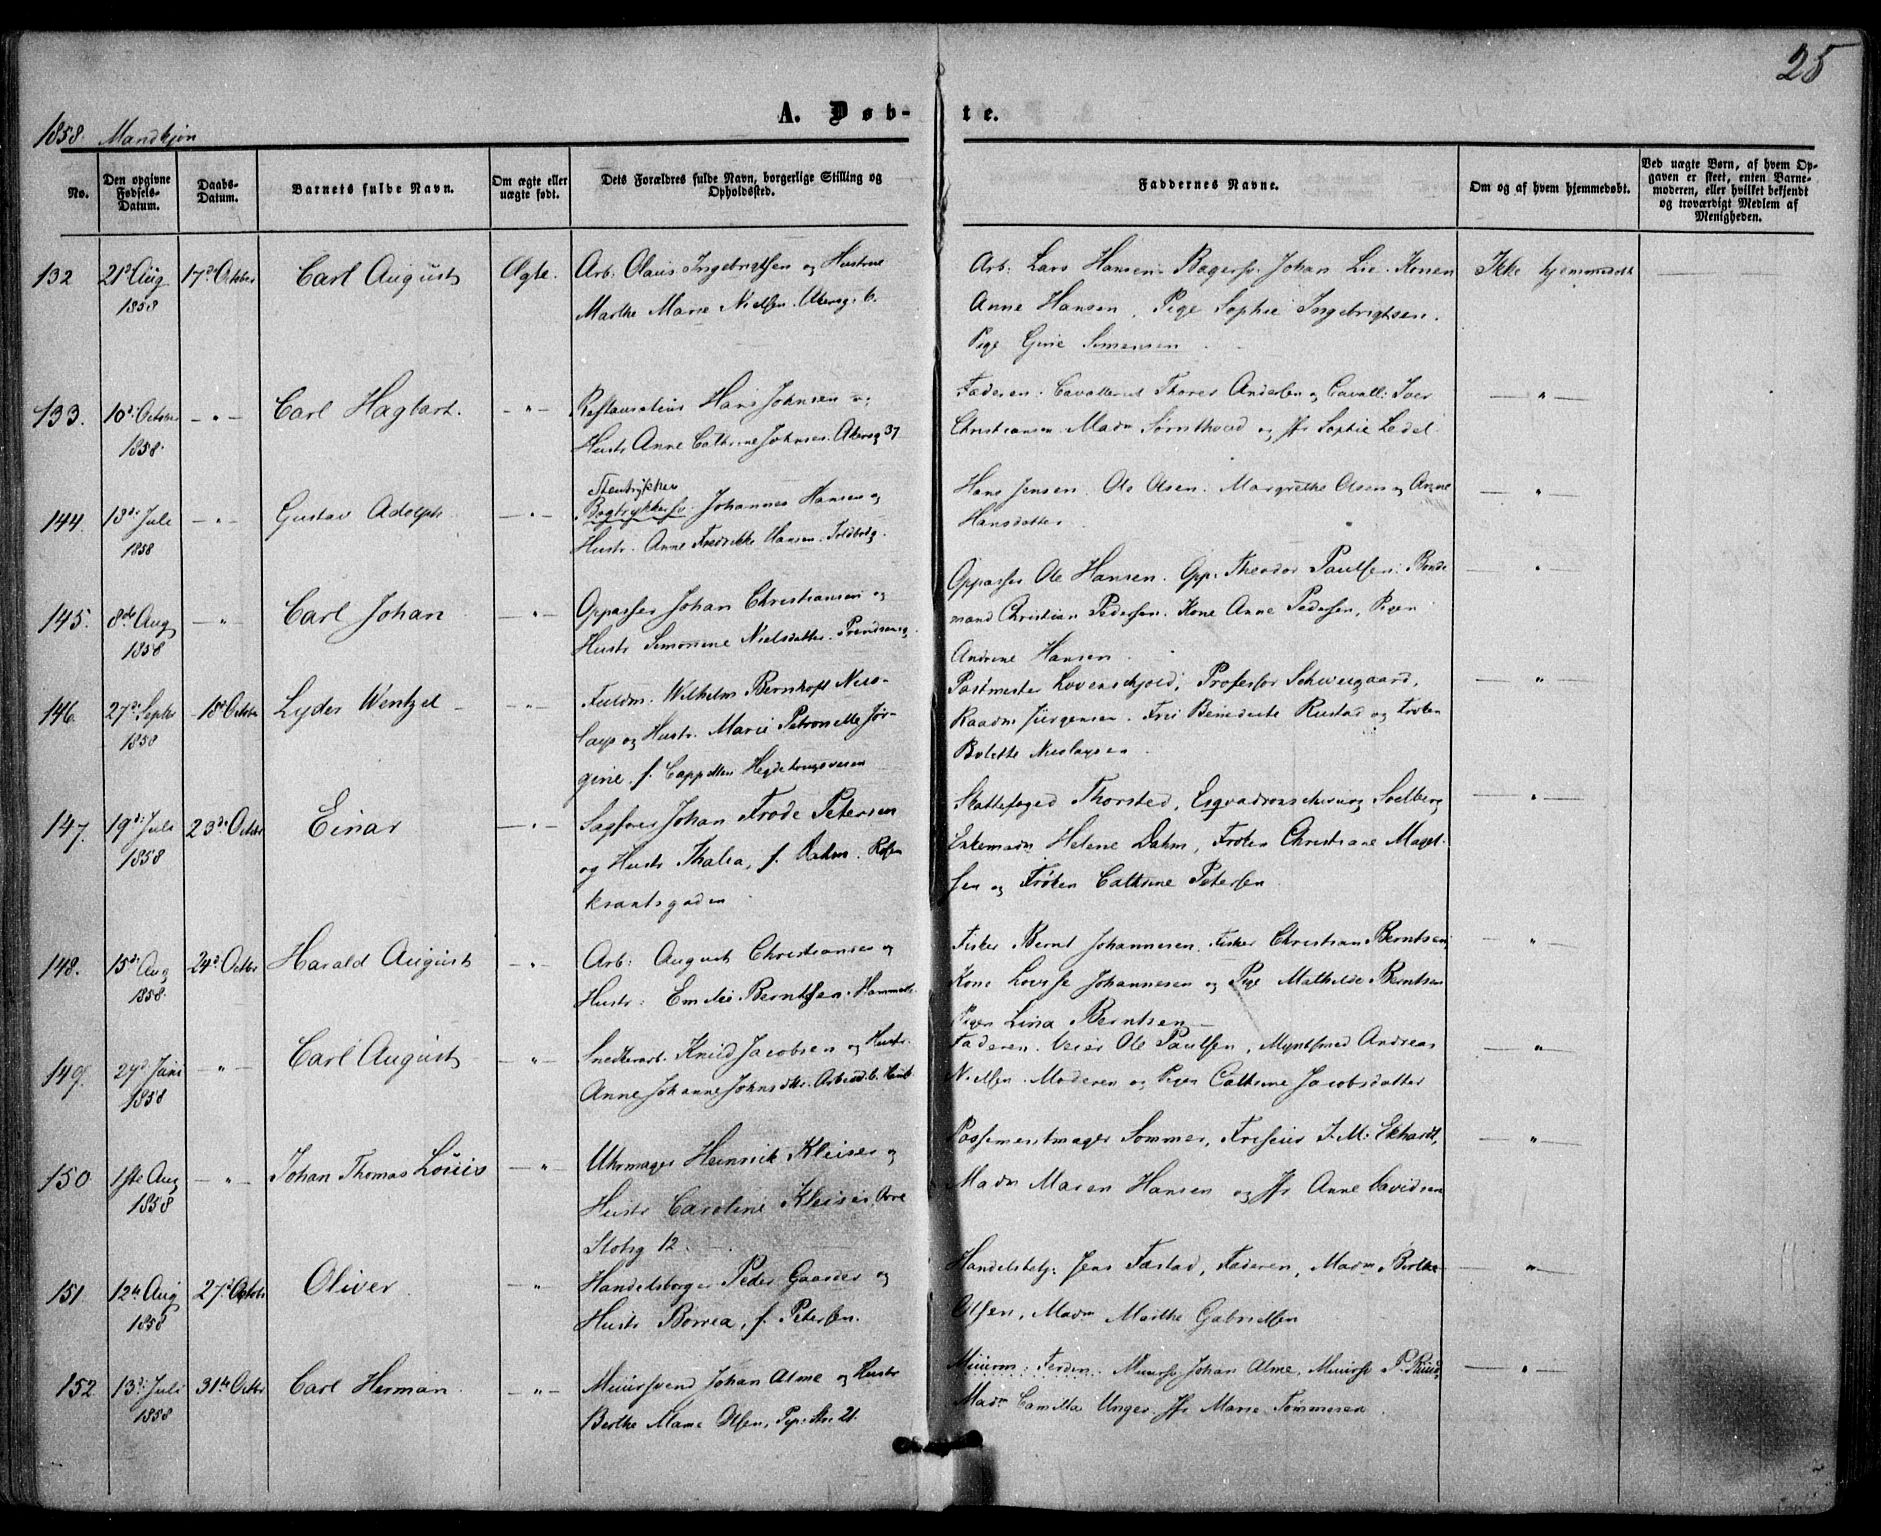 25
A. Døb- te.
1858. Mandkjøn
No.
Den opgivne Fødsels-Datum.
Daabs-Datum.
Barnets fulde Navn.
Om ægte eller uægte født.
Dets Forældres fulde Navn, borgerlige Stilling og Opholdssted.
Faddernes Navne.
Om og af hvem hjemmedøbt.
Ved uægte Børn, af hvem Opgaven er skeet, enten Barnemoderen, eller hvilket bekjendt og troværdigt Medlem af Menigheden.
132 21d Aug 1858 17de October Carl August Ægte.
Arb: Olaus Ingebrigtsen og Hustrue
Marthe Marie Nielsen. Akersg. 6.
Arb: Lars Hansen. Bagersv. Johan Lie. Konen
Anne Hansen, Pige Sophie Ingebrigtsen.
Pige Gine Simensen
Ikke hjemmedøbt
133. 10d October 1858. — " — Carl Hagbart. — " —
Restauratius Hans Johnsen og
Hustr Anne Cathrine Johnsen. Akersg 37
Faderen. Cavallerist Thores Andersen og Cavall: Iver
Christiansen. Madm Sørnthved og Jfr Sophie Ledel
— " —
144. 13de Juli 1858 — " — Gustav Adolph — " —
Stentrykker
Bogtrykkersv. Johannes Hansen og
Hustr. Anne Fredrikke Hansen. Toldbodg.
Hans Jensen. Ole Olsen. Margrethe Olsen og Anne
Hansdatter
— " —
145. 8de Aug 1858 — " — Carl Johan — " —
Oppasser Johan Christiansen og
Hustr Simonine Nielsdatter. Prindsensg.
Oppasser Ole Hansen. Opp: Theodor Paulsen. Bonde
mand Christian Pedersen. Kone Anne Pedersen, Pigen
Andrine Hansen
"
146. 27de Septr 1858 18de October Lyder Wentzel — " —
Fuldm. Wilhelm Bernhoft Nico-
laysen og Hustr. Marie Petronelle Jør-
gine f. Cappellen Hegdehaugsveien
Postmester Løvenskjold, Professor Schweigaard,
Raadm Jürgensen. Frü Benedicte Rustad og Frøken
Bolette Nicolaysen
— " —
147. 19de Juli 1858 23de Octbr Einar — " —
Sagfører Johan Frode Petersen
og Hustr Thalia, f. Dahm. Rosen
krantsgaden
Skattefoged Thorsted, Esqvadronschirurg Soelberg
Enkemadm Helene Dahm, Frøken Christiane Magel-
sen og Frøken Cathrine Petersen
— " —
148. 15de Aug 1858. 24de Octbr Harald August — " —
Arb: August Christiansen og
Hustr: Emilie Berntsen.
Fisker Bernt Johannesen, Fisker Christian Berntsen,
Kone Lovise Johannesen og Pige Mathilde Berntsen
Pigen Lina Berntsen
— " —
149. 27d Juni 1858 — " — Carl August — " —
Snedkerarb. Knüd Jacobsen og Hustr.
Anne Johanne Johnsdtr.
Faderen. Veier Ole Paulsen, Myntsmed Andreas
Nielsen. Moderen og Pigen Cathrine Jacobsdatter
— " —
150 1ste Aug 1858 — " — Johan Thomas Loüis — " —
Uhrmager Heinrik Kleiser og
Hustr Caroline Kleiser. Øvre
Slotsg 12.
Possementmager Sommer, Friseur J. M. Ekhardt,
Madm Maren Hansen og Jfr Anne Davidsen
— " —
151. 12te Aug 1858 27de Octobr Oliver "
Handelsborger Peder Gaarder og
Hustr Borrea, f. Petersen.
Handelsbetj. Jens Fæstad, Faderen, Madm Berthe
Olsen, Madm Marthe Gabrielsen
— " —
152 13de Juli 1858 31te Octbr Carl Herman — " —
Muursvend Johan Alme og Hustr
Berthe Marie Olsen, Pip: Str. 21.
Muurm: Ferdin. Muursv Johan Alme, Muursv P. Knud
Madm Camilla Unger. Jfr Marie Tommesen
— " —